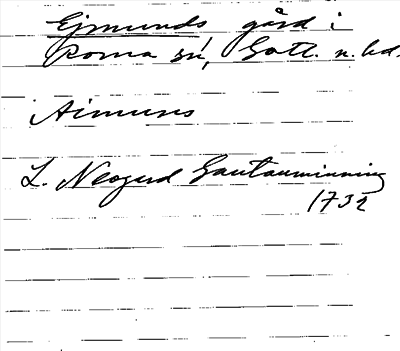 Ejmunds gård i
Roma sn, Gotl. n. hd.
Aimuns
L. Neogard Gautauminning
1732